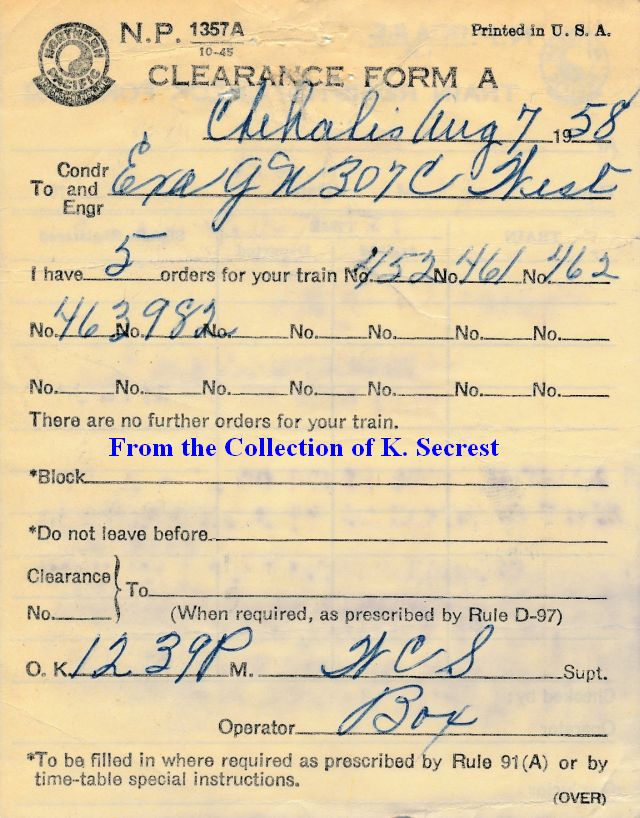 NORTHERN PACIFIC
N.P. 1357A
10-45
Printed in U. S. A.
CLEARANCE FORM A
Chehalis Aug 7 1958
To Condr and Engr Exa GN 307C West
I have 5 orders for your train No. 452 No. 461 No. 462
No. 463 No. 982 No. No. No. No. No.
No. No. No. No. No. No. No.
There are no further orders for your train.
From the Collection of K. Secrest
*Block
*Do not leave before
Clearance
To
No. (When required, as prescribed by Rule D-97)
O. K. 1239P M. WCS Supt.
Operator Box
*To be filled in where required as prescribed by Rule 91(A) or by
time-table special instructions.
(OVER)